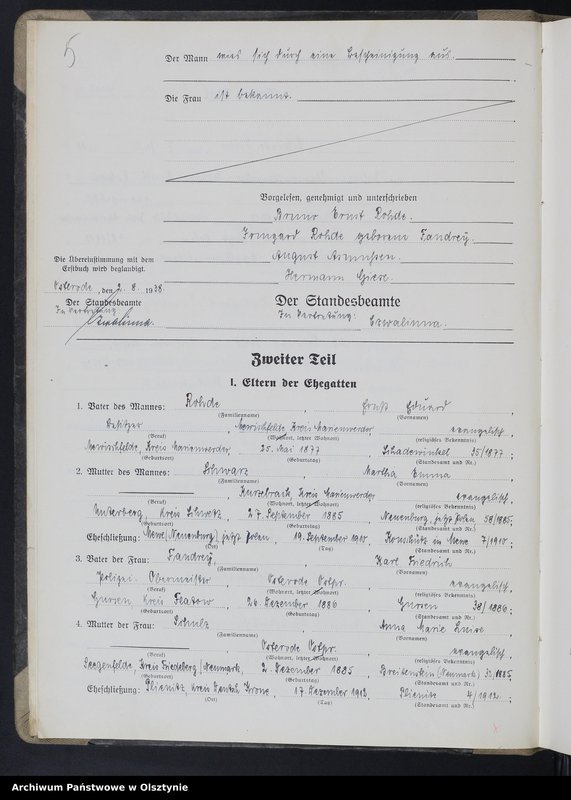 5
Der Mann wies sich durch eine Bescheinigung aus.
Die Frau ist bekannt.
Vorgelesen, genehmigt und unterschrieben
Bruno Ernst Rohde.
Irmgard Rohde geborene Fandrey.
August
Hermann Giese.
Die Übereinstimmung mit dem
Erstbuch wird beglaubigt.
Osterode, den 2. 8. 1938
Der Standesbeamte
In Vertretung
Czwalinna.
Der Standesbeamte
In Vertretung: Czwalinna.
Zweiter Teil
I. Eltern der Ehegatten
1. Vater des Mannes: Rohde, Ernst Eduard,
(Familienname) (Vornamen)
Besitzer, Kreis Marienwerder evangelisch,
(Beruf) (Wohnort, letzter Wohnort) (religiöses Bekenntnis)
Kreis Marienwerder, 25. Mai 1877, Schadewinkel 35/1877;
(Geburtsort) (Geburtstag) (Standesamt und Nr.)
2. Mutter des Mannes: Schwarz, Martha Emma,
(Familienname) (Vornamen)
Kurzebrack, Kreis Marienwerder evangelisch,
(Beruf) (Wohnort, letzter Wohnort) (religiöses Bekenntnis)
Unterberg, Kreis Schwetz, 27. September 1885, Neuenburg, jetzt Polen 58/1885;
(Geburtsort) (Geburtstag) (Standesamt und Nr.)
Eheschließung: Mewe (Neuenburg) jetzt Polen, 19. September 1910, in Mewe 7/1910;
(Ort) (Tag) (Standesamt und Nr.)
3. Vater der Frau: Fandrey, Karl Friedrich,
(Familienname) (Vornamen)
Polizei-Obermeister, Osterode Ostpr., evangelisch,
(Beruf) (Wohnort, letzter Wohnort) (religiöses Bekenntnis)
Gursen, Kreis Flatow, 26. Dezember 1886, Gursen 38/1886;
(Geburtsort) (Geburtstag) (Standesamt und Nr.)
4. Mutter der Frau: Schulz, Anna Marie Luise,
(Familienname) (Vornamen)
Osterode Ostpr., evangelisch,
(Beruf) (Wohnort, letzter Wohnort) (religiöses Bekenntnis)
Seegenfelde, Kreis Friedeberg/Neumark, 2. Dezember 1885, Breitenstein (Neumark) 32/1885,
(Geburtsort) (Geburtstag) (Standesamt und Nr.)
Eheschließung: Plienitz, Kreis Deutsch Krone, 17. Dezember 1912, Plienitz 4/1912.
(Ort) (Tag) (Standesamt und Nr.)
Archiwum Państwowe w Olsztynie